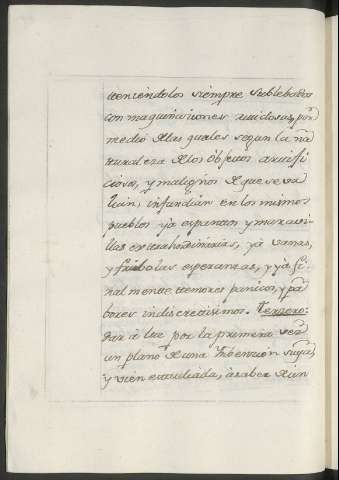 teniendolos siempre soblebados
con maquinaciones ruidosas, por
medio de las quales segun la na
turaleza de los objetos artifi
ciosos, y malignos de que se va
lian, infundian en los mismos
pueblos ya espantos y maravi
llas extrahordinarias, ya vanas,
y fribolas esperanzas, y ya fi
nalmente temores panicos, y pa
bores indicretisimos. Terzero:
dar à luz por la primera vez
un plano de una Inbencion suya,
y vien estudiada, à saber de un